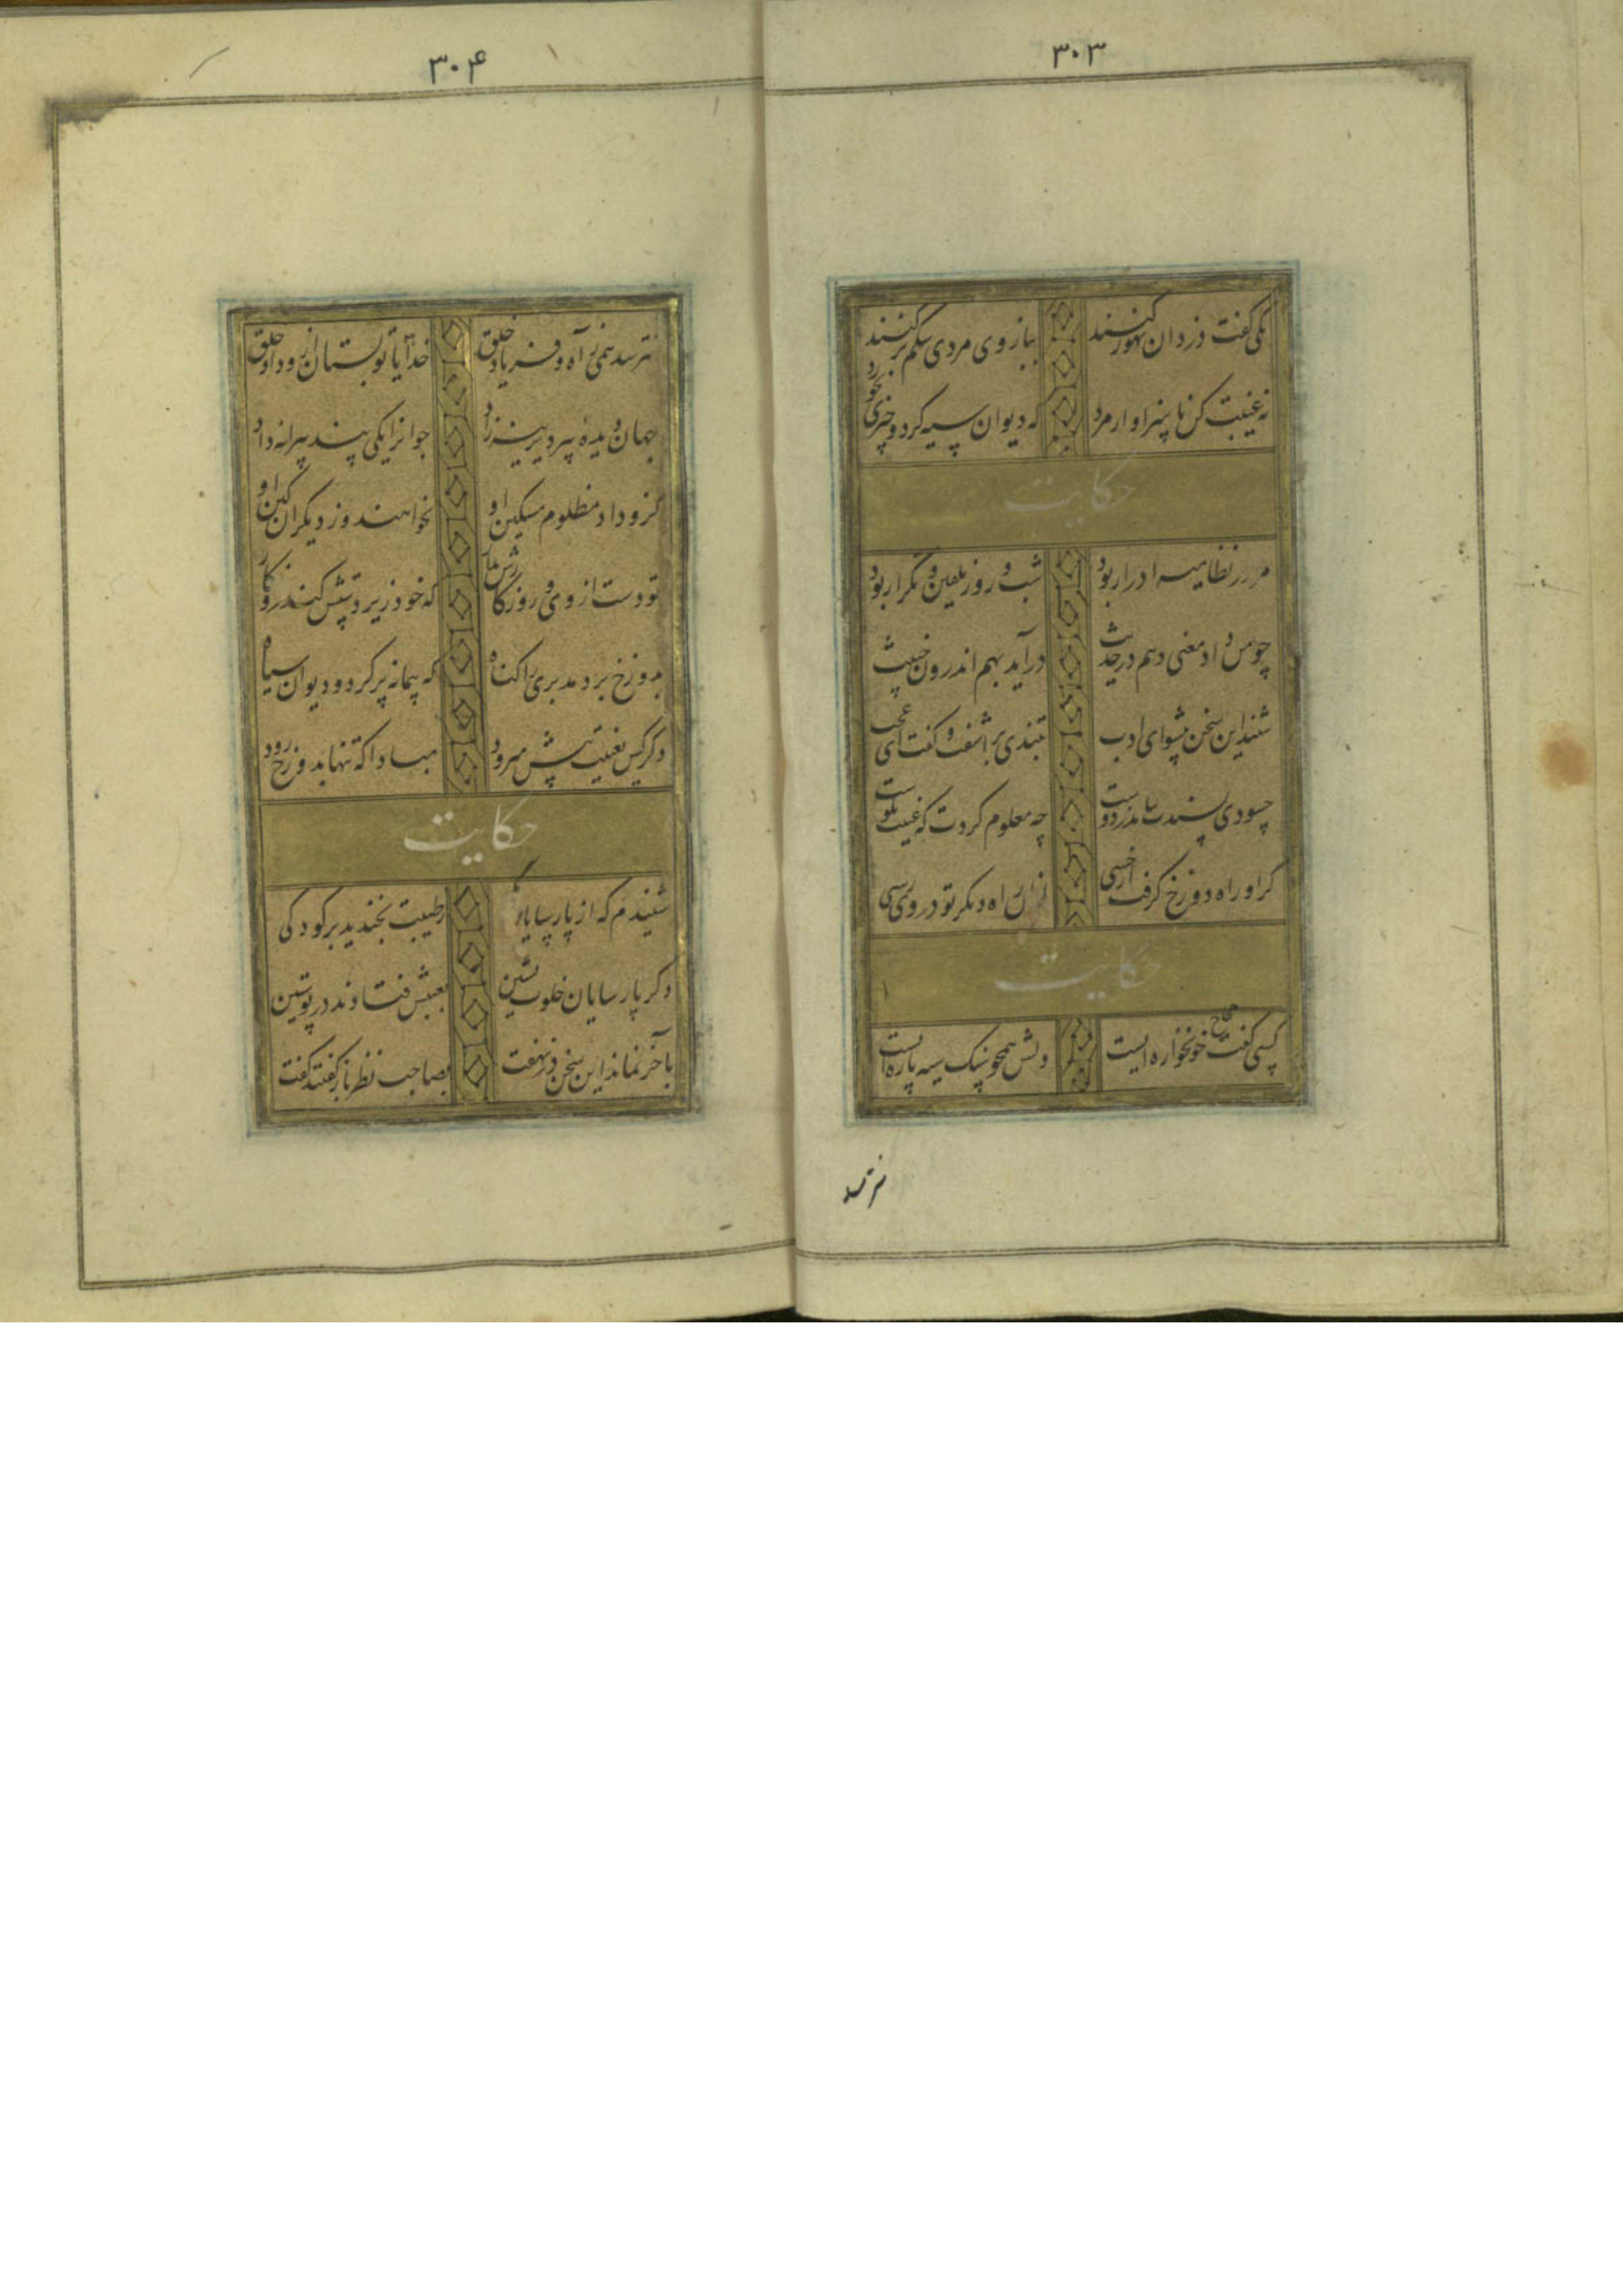 ۳۰۳
بلی گفت دزدان تهور کنند ببازوی مردی شکم پر کنند
نه غیبت کن ناسزاوار مرد که دیوان سیه کرد و چیزی نخورد
حکایت
مرا در نظامیه ادرار بود شب و روز تلقین و تکرار بود
چو من داد معنی دهم در حدیث درآید بهم اندرون خبیث
شنید این سخن پیشوای ادب بتندی برآشفت و گفت ای عجب
حسودی پسندت نیامد ز دوست چه معلوم کردت که غیبت نکوست
گر او راه دوزخ گرفت از خسی ازان راه دیگر تو در وی رسی
حکایت
کسی گفت حجاج خونخواره ایست دلش همچو سنگ سیه پاره ایست
نترسد
۳۰۴
نترسد همی ز آه و فریاد خلق خدایا تو بستان ازو داد خلق
جهان دیدهٔ پیر دیرینه زاد جوانرا یکی پند پیرانه داد
کزو داد مظلوم مسکین او بخواهند و از دیگران کین او
تو دست از وی و روزگارش بدار که خود زیر دستش کند روزگار
بدوزخ برد مدبری را گناه که پیمانه پر کرد و دیوان سیاه
دگر کس بغیبت پیش میرود مبادا که تنها بدوزخ رود
حکایت
شنیدم که از پارسایان یکی بطیبت بخندید بر کودکی
دگر پارسایان خلوت نشین بعیبش فتادند در پوستین
بآخر نماند این سخن در نهفت بصاحب نظر باز گفتند گفت